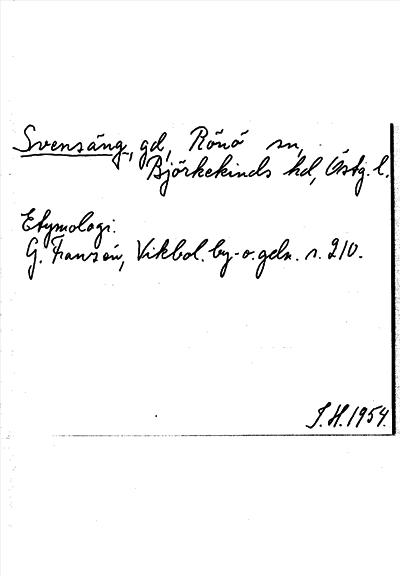 Svensäng, gd, Rönö sn,
Björkekinds hd, Östg. l.
Etymologi.
G. Franzén, Vikbol. by- o. gdn. s. 210.
J.H. 1954.